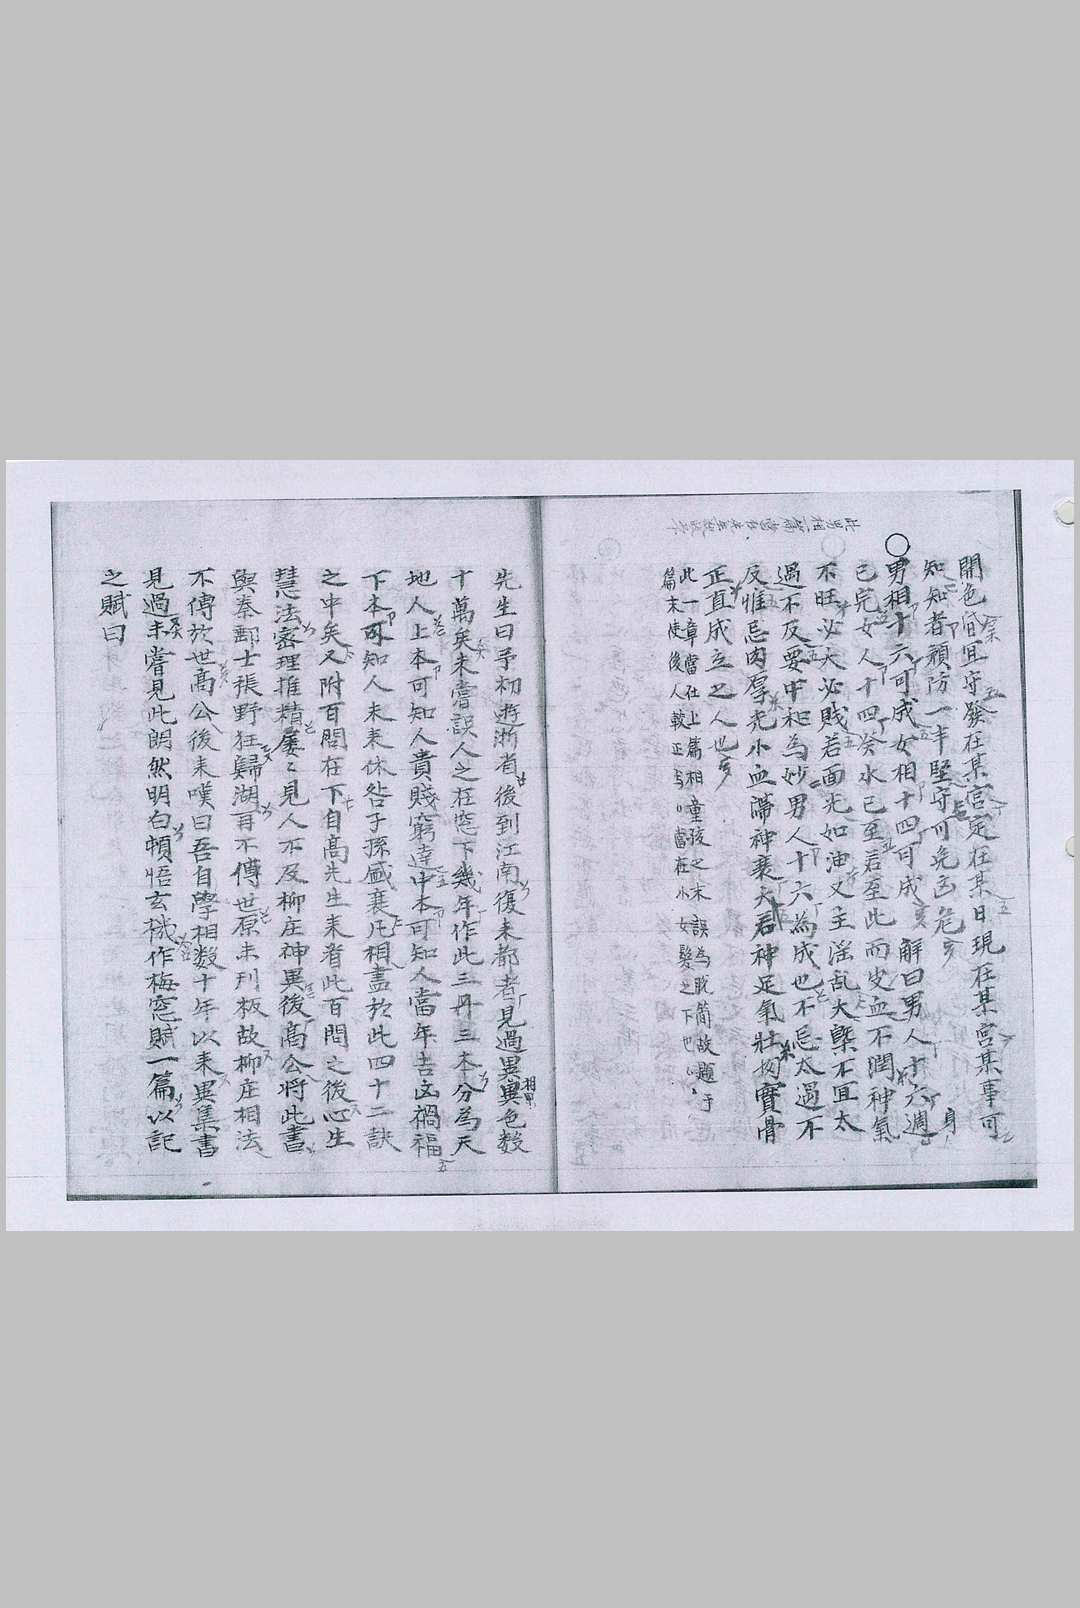 開色宜守發在某宮定在某日現在某宮某事可
知知者預防一半堅守可免凶危
男相十六可成女相十四可成 解曰男人十六週身
已完女人十四癸水已至若至此而皮血不潤神氣
不旺必夭必賤若面光如油又主淫乱大槩不宜太
過不及要中和為妙男人十六為成也不忌太過不
反惟忌肉厚光小血滯神衰大君神足氣壯物實骨
正直成立之人也
此一章當仕上篇相童孩之末誤為脫簡故題于
篇末使後人較正焉當在小女髮之下也
先生曰予初遊浙省後到江南復來都者見過異異色数
十萬矣未嘗誤人之在窓下幾年作此三冊三本分為天
地人上本可知人貴賤窮達中本可知人當年吉凶禍福
下本可知人未來休咎子孫盛衰凡相盡於此四十二訣
之中矣又附百問在下自髙先生来者此百問之後心生
慧法密理推精屢〻見人不及柳庄神異後髙公将此書
與秦鄷士張野狂歸湖再不傳世原未刊板故柳庄相法
不傳於世髙公後来嘆曰吾自學相数十年以来異集書
見過未嘗見此朗然明白頓悟玄機作梅窓賦一篇以記
之賦曰